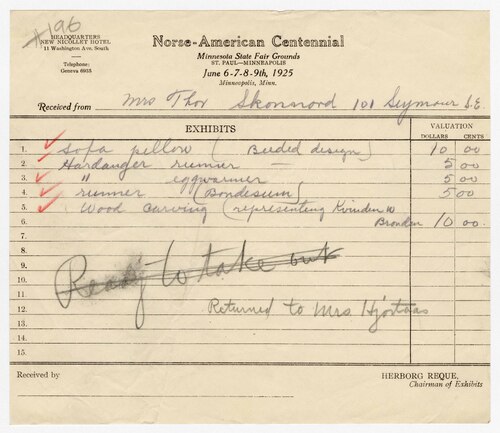 #196
HEADQUARTERS
NEW NICOLLET HOTEL
11 Washington Ave. South
Telephone:
Geneva 6935
Norse-American Centennial
Minnesota State Fair Grounds
ST. PAUL—MINNEAPOLIS
June 6-7-8-9th, 1925
Minneapolis, Minn.
Received from Mrs Thor Skonnord 101 Seymour S.E.
EXHIBITS
VALUATION
DOLLARS CENTS
1. Sofa pillow (Beeded design) 10 00
2. Hardanger runner —  5 00
3. " eggwarmer 5 00
4. runner (Bondesum) 5 00
5. Wood carving (representing Kvinden w
6. Bronden 10 00.
7.
8.
9.
10. Ready to take out
11.
12. Returned to Mrs. Hjortaas
13.
14.
15.
Received by
HERBORG REQUE,
Chairman of Exhibits